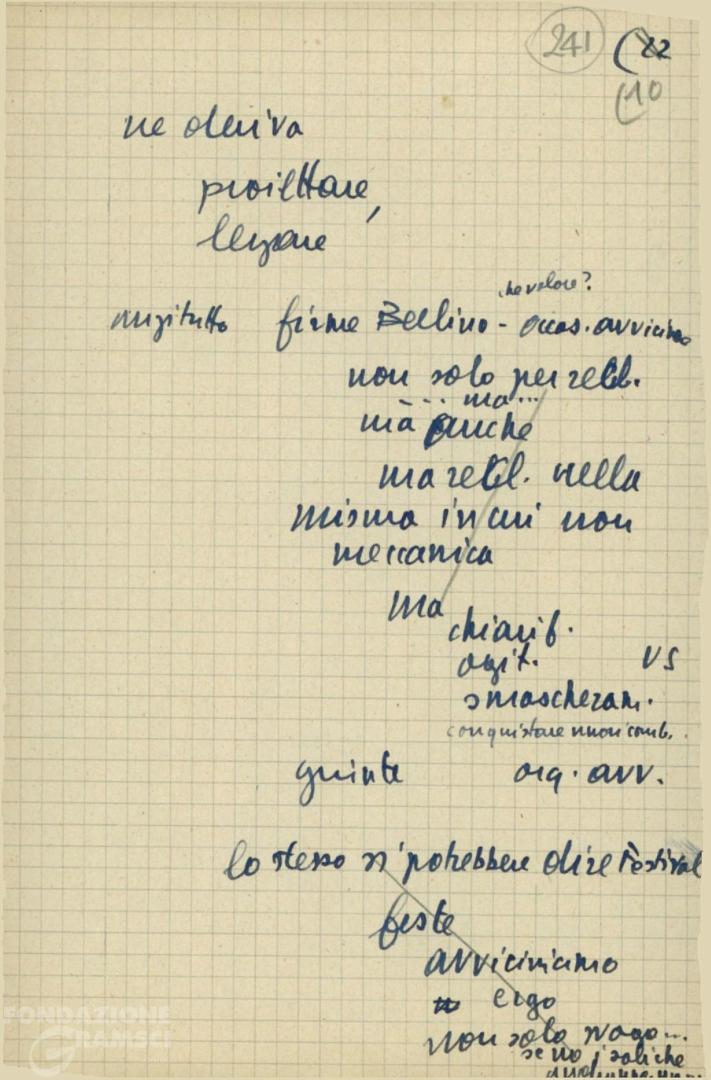 241 (22
(10
ne deriva
proiettare,
legare
che valore?
anzitutto firme Berlino - occas. avvicina
non solo per rebb.
--- ma...
ma anche
ma rebb. nella
misura in cui non
meccanica
ma
chiarif.
agit. VS
smascheram.
conquistare nuovi comb.
quinte org. avv.
lo stesso si potrebbe dire Festival
feste
avviciniamo
ergo
non solo svago...
se no i soliti che
FONDAZIONE
GRAMSCI